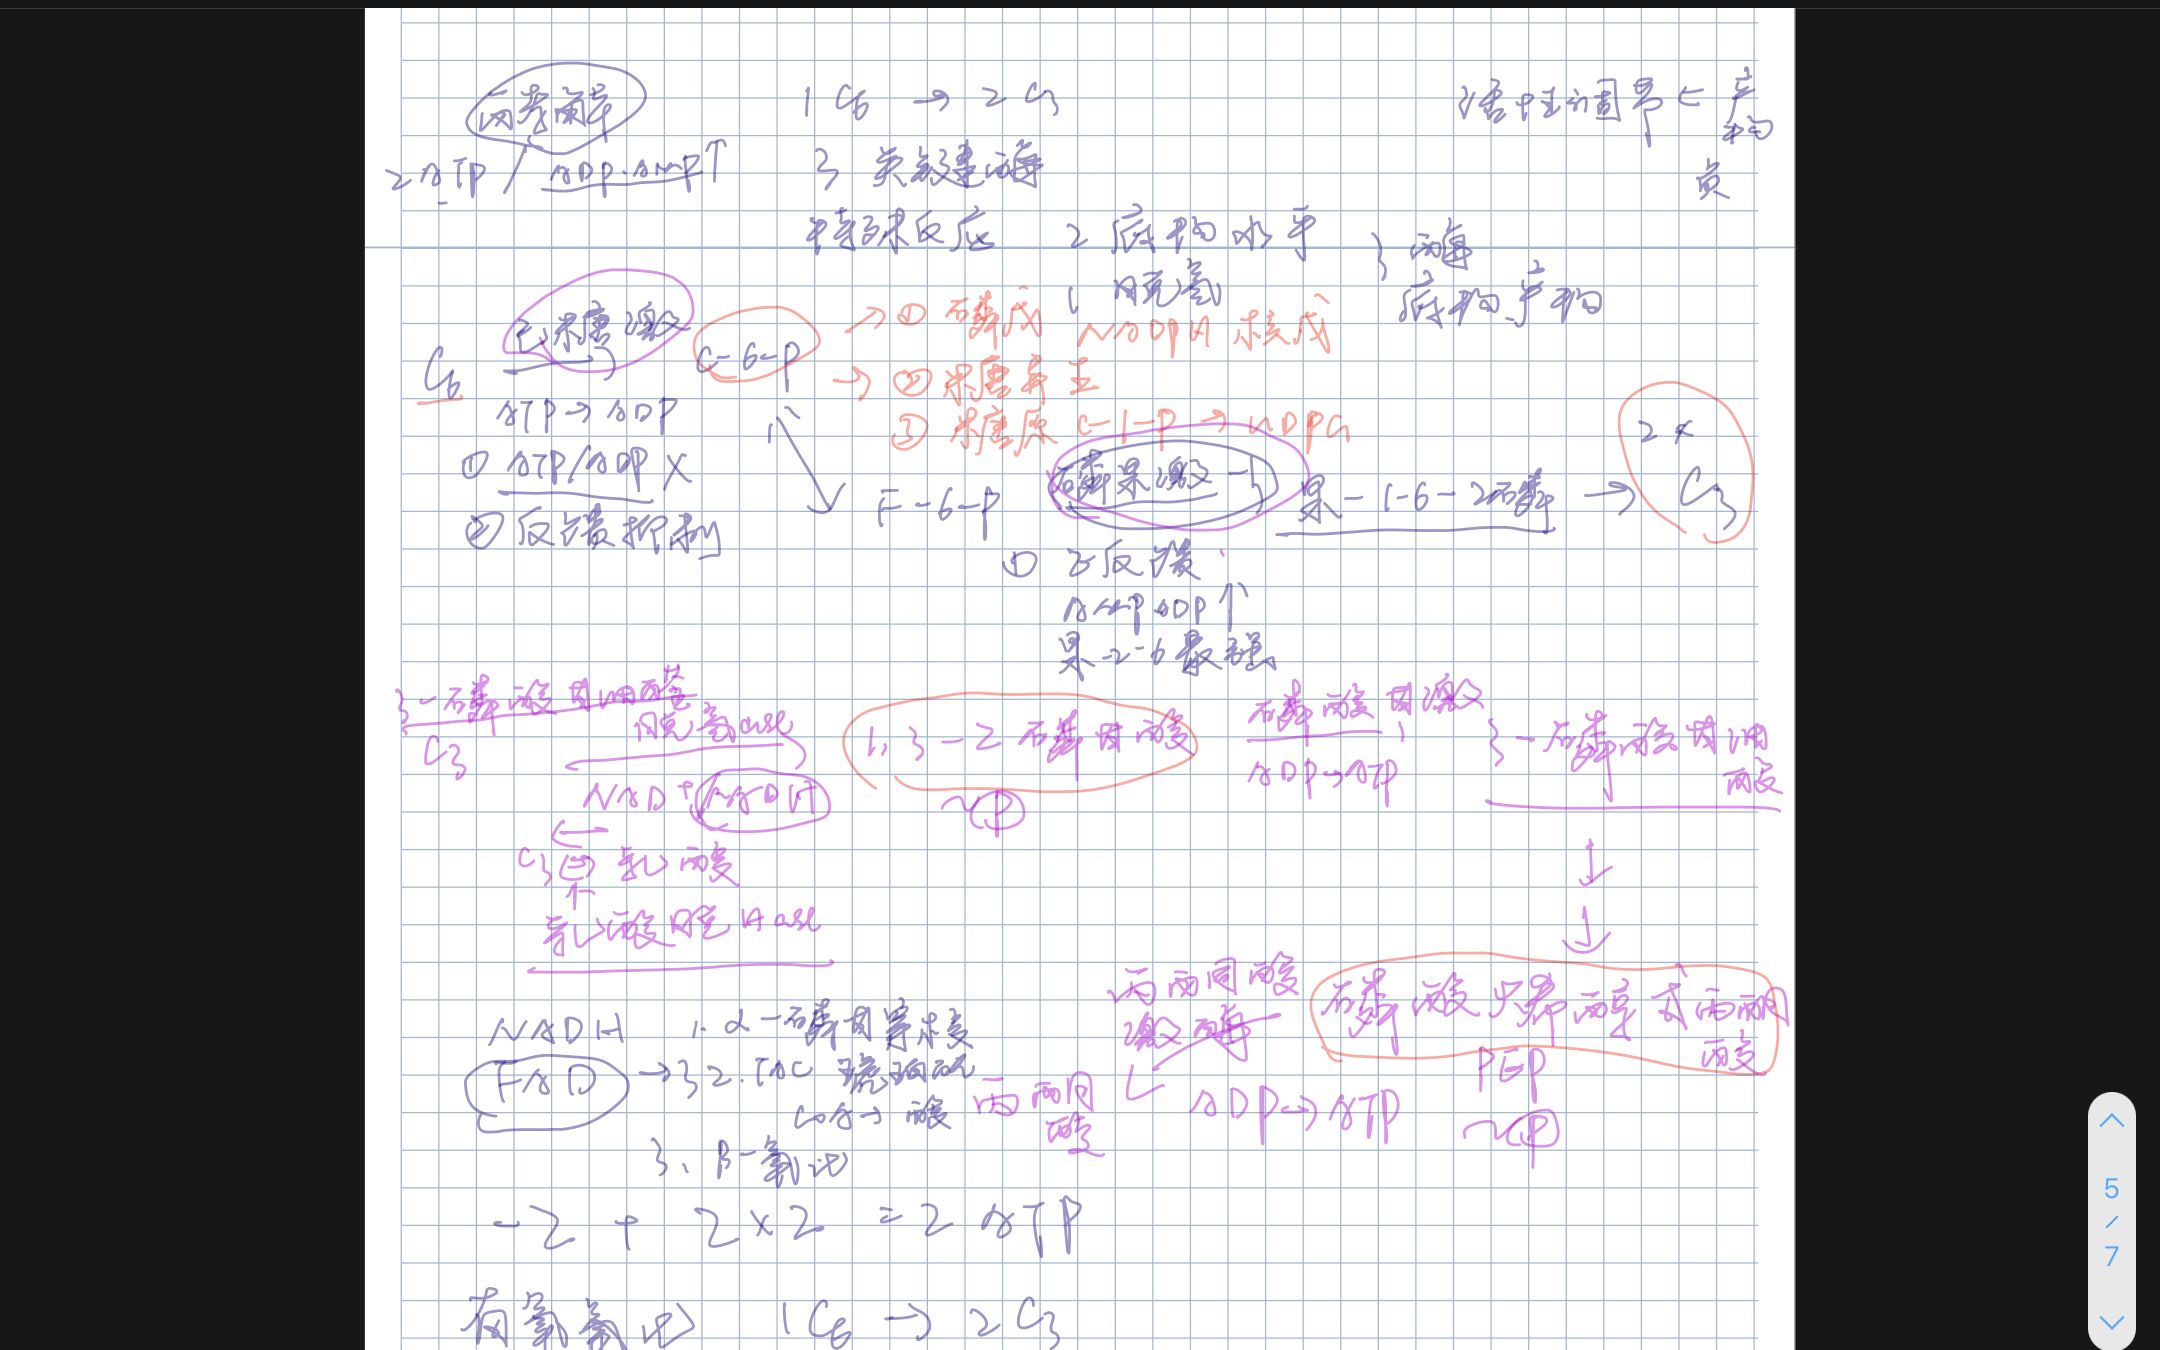 酵解
1 C6 → 2 C3
活性调节 ← 产物
2 ATP / ADP·AMP↑
3 关键酶
负
特殊反应
2 底物水平
1 脱氢
} 酶
底物产物
己糖激
C6
G-6-P
→ ① 磷戊 NADPH 核戊
→ ② 糖异生
③ 糖原 G-1-P → UDPG
ATP→ADP
① ATP/ADP X
② 反馈抑制
F-6-P
磷果激-1
果-1-6-2磷 →
2 x C3
① 正反馈
AMP ADP ↑
果-2-6 最强
3-磷酸甘油醛
脱氢ase
C3
NAD+ NADH
1,3-2磷甘酸
~P
磷酸甘激
ADP→ATP
3-磷酸甘油酸
↓
C3 乳酸
↑
乳酸脱Hase
↓
磷酸烯醇式丙酮酸
PEP
~P
丙酮酸激酶
ADP→ATP
丙酮酸
NADH
FAD
→ 1. α-磷甘穿梭
2. TAC 琥珀酰CoA→酸
3. β-氧化
-2 + 2×2 = 2 ATP
有氧氧化 1C6 → 2 C3
5
/
7